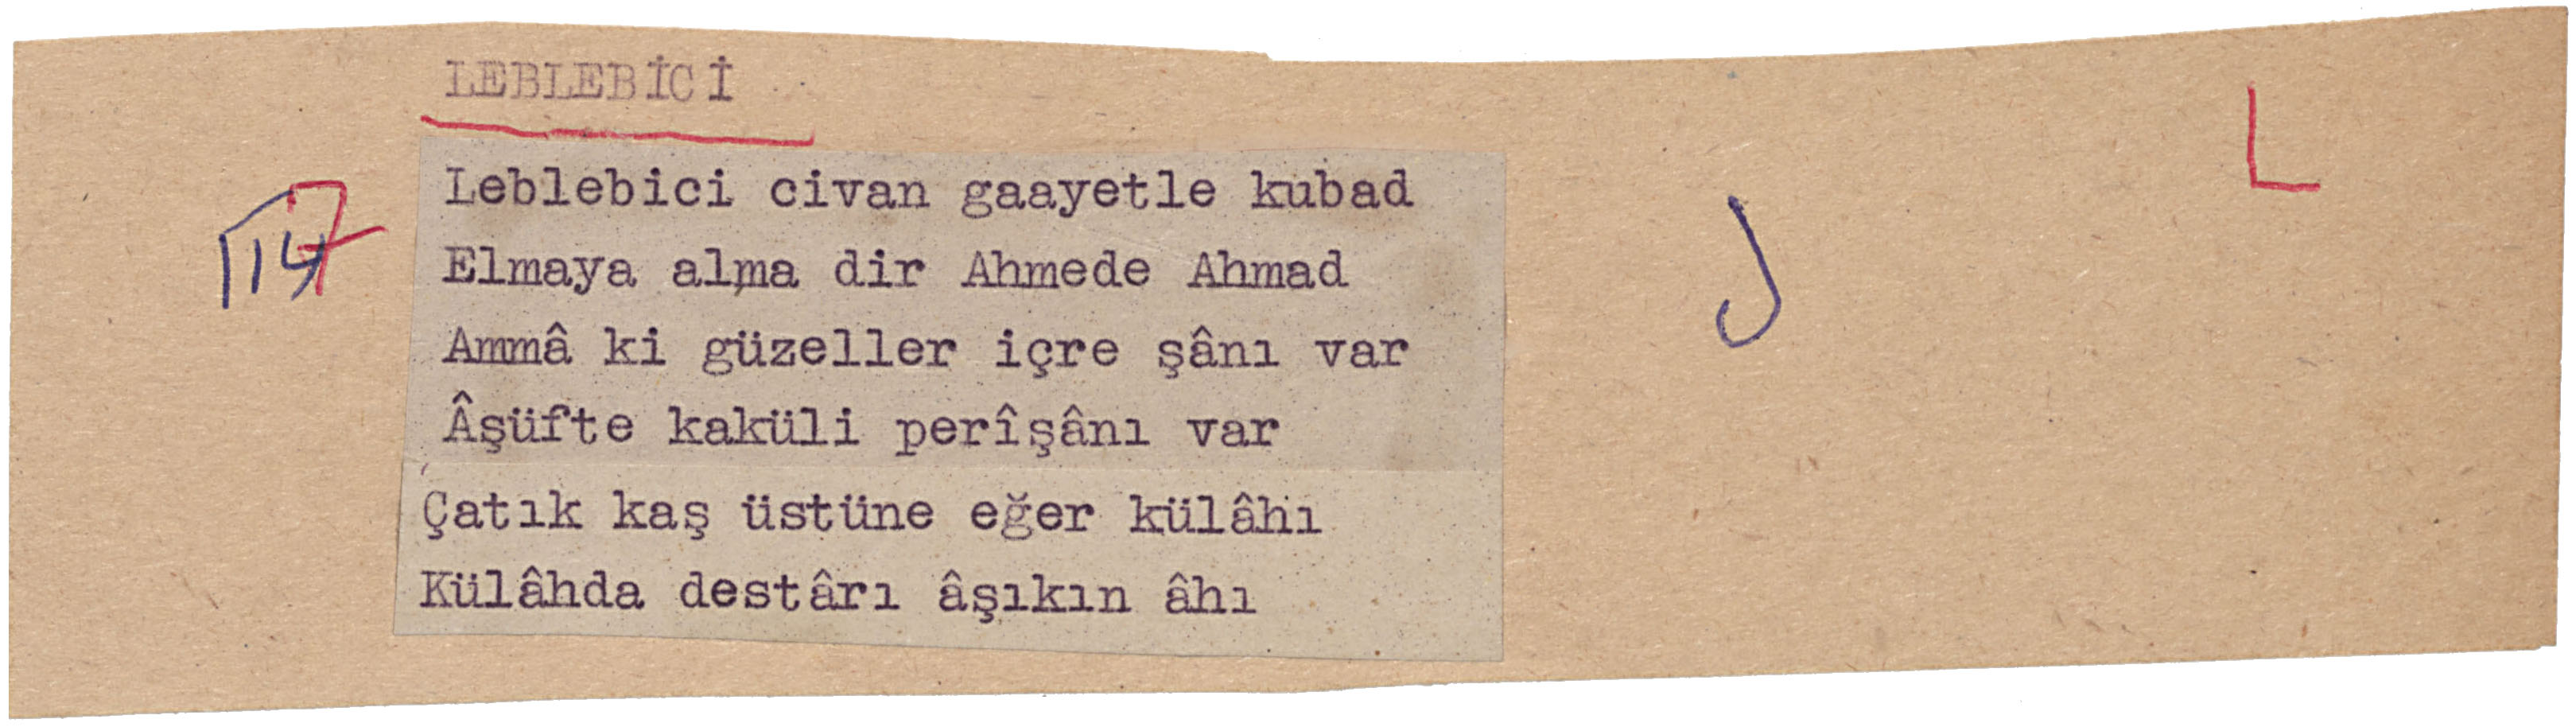 LEBLEBİCİ
L
Leblebici civan gaayetle kubad
Elmaya alma dir Ahmede Ahmad
Ammâ ki güzeller içre şânı var
Âşüfte kaküli perîşânı var
Çatık kaş üstüne eğer külâhı
Külâhda destârı âşıkın âhı